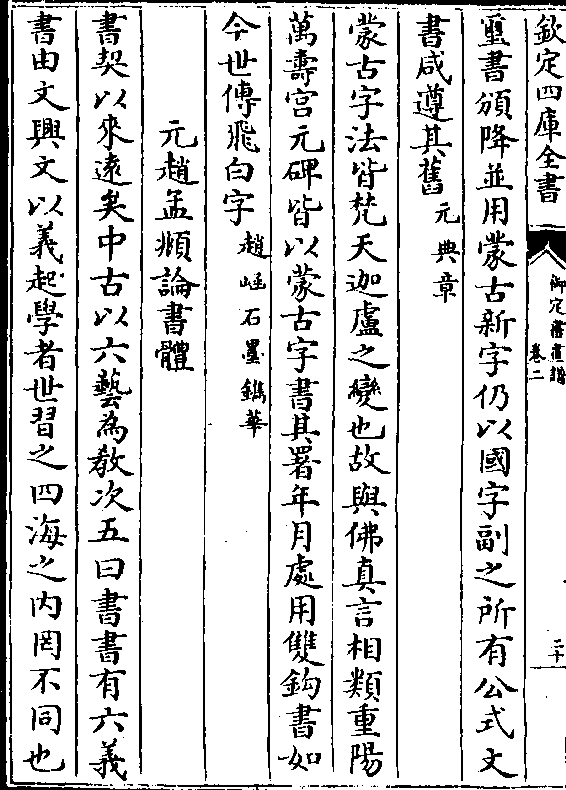 欽定四庫全書
御定書畫譜
卷二
二十
璽書頒降並用蒙古新字仍以國字副之所有公式文
書咸遵其舊元典章
蒙古字法皆梵天迦盧之變也故與佛真言相類重陽
萬壽宮元碑皆以蒙古字書其署年月處用雙鈎書如
今世傳飛白字趙崡石墨鐫華
元趙孟頫論書體
書契以來遠矣中古以六藝為教次五曰書書有六義
書由文興文以義起學者世習之四海之内罔不同也